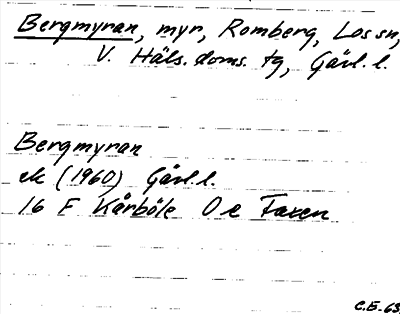 Bergmyran, myr, Romberg, Los sn,
V. Häls. doms. tg, Gävl. l.
Bergmyran
ek (1960) Gävl. l.
16 F Kårböle O e Faxen
C.E. -63.